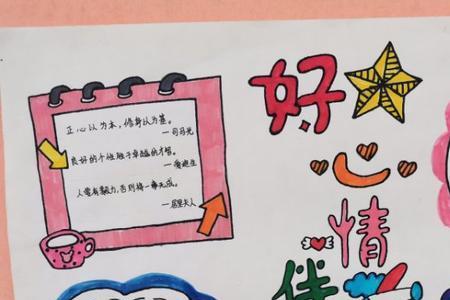 正心以为本，修身以为基。
—司马光
良好的个性胜于卓越的才智。
—爱迪生
人要有毅力，否则将一事无成。
—居里夫人
好
心
情